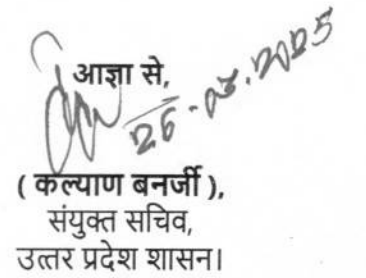 आज्ञा से,
26-03-2025
( कल्याण बनर्जी ),
संयुक्त सचिव,
उत्तर प्रदेश शासन।